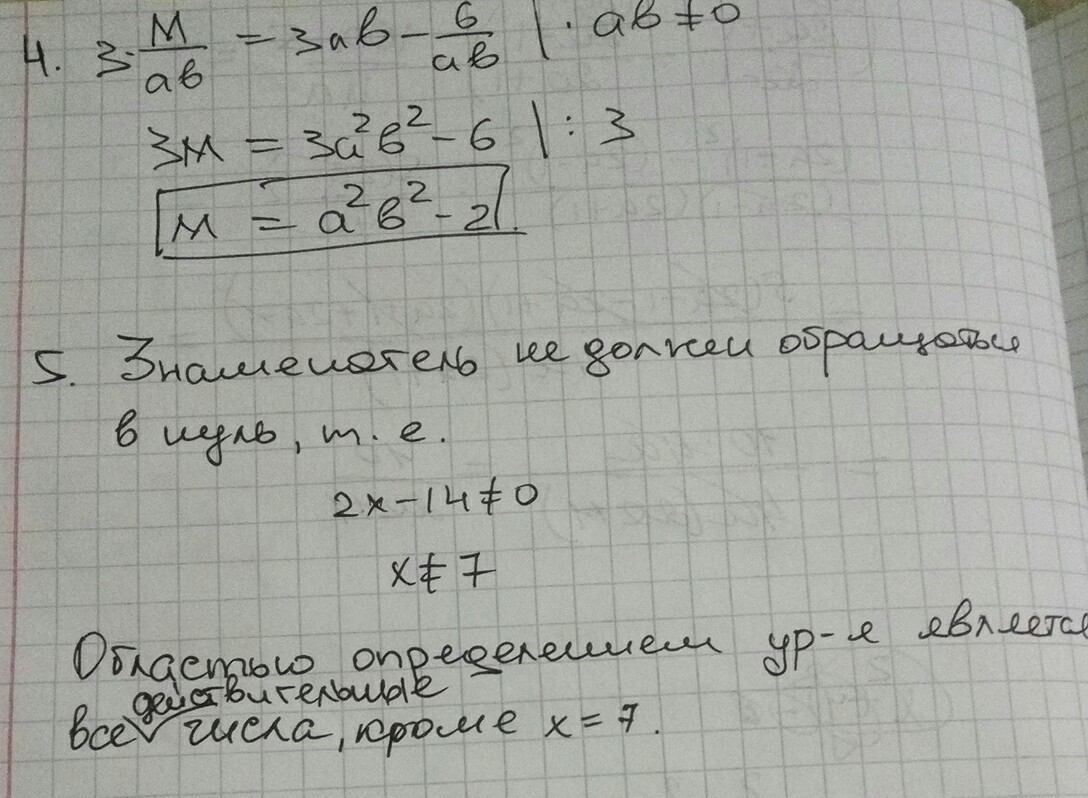 4. 3·M/ab = 3ab − 6/ab | · ab ≠ 0
3M = 3a²b² − 6 | : 3
M = a²b² − 2.
5. Знаменатель не должен обращаться
в нуль, т. е.
2x − 14 ≠ 0
x ≠ 7
Областью определением ур-я является
действительные
все числа, кроме x = 7.